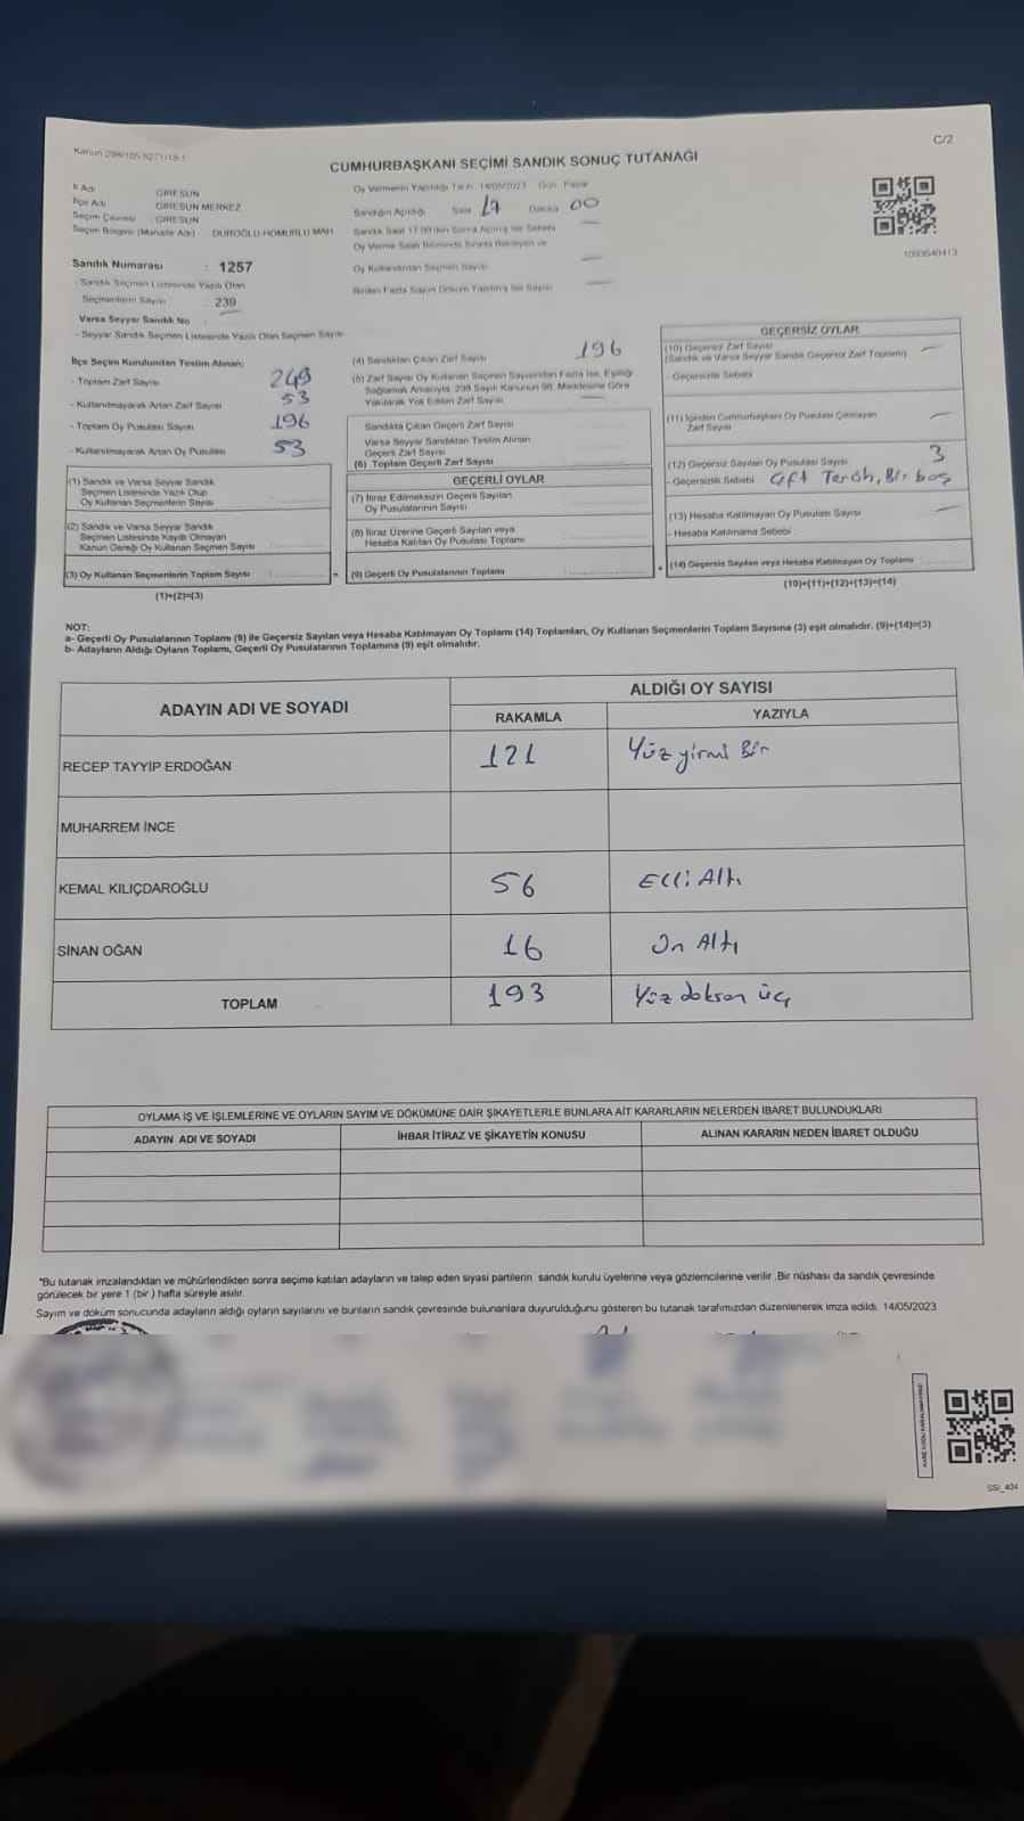 C/2
CUMHURBAŞKANI SEÇİMİ SANDIK SONUÇ TUTANAĞI
İl Adı GİRESUN
İlçe Adı GİRESUN MERKEZ
Seçim Çevresi GİRESUN
Seçim Bölgesi (Mahalle Adı)
Oy Vermenin Yapıldığı Tarih: 14/05/2023 Gün: Pazar
Sandığın Açıldığı Saat 17 Dakika 00
Sandık Numarası : 1257
- Sandık Seçmen Listesinde Yazılı Olan
Seçmenlerin Sayısı : 239
Varsa Seyyar Sandık No
- Seyyar Sandık Seçmen Listesinde Yazılı Olan Seçmen Sayısı
İlçe Seçim Kurulundan Teslim Alınan:
- Toplam Zarf Sayısı 249
- Kullanılmayarak Artan Zarf Sayısı 53
- Toplam Oy Pusulası Sayısı 196
- Kullanılmayarak Artan Oy Pusulası 53
(1) Sandık ve Varsa Seyyar Sandık
Seçmen Listesinde Yazılı Olup
Oy Kullanan Seçmenlerin Sayısı
(2) Sandık ve Varsa Seyyar Sandık
Seçmen Listesinde Kayıtlı Olmayan
Kanun Gereği Oy Kullanan Seçmen Sayısı
(3) Oy Kullanan Seçmenlerin Toplam Sayısı
(1)+(2)=(3)
(4) Sandıktan Çıkan Zarf Sayısı 196
(5) Zarf Sayısı Oy Kullanan Seçmen Sayısından Fazla İse, Eşitliği
Sağlamak Amacıyla, 298 Sayılı Kanunun 98. Maddesine Göre
Yakılarak Yok Edilen Zarf Sayısı
Sandıkta Çıkan Geçerli Zarf Sayısı
Varsa Seyyar Sandıktan Teslim Alınan
Geçerli Zarf Sayısı
(6) Toplam Geçerli Zarf Sayısı
GEÇERLİ OYLAR
(7) İtiraz Edilmeksizin Geçerli Sayılan
Oy Pusulalarının Sayısı
(8) İtiraz Üzerine Geçerli Sayılan veya
Hesaba Katılan Oy Pusulası Toplamı
(9) Geçerli Oy Pusulalarının Toplamı
GEÇERSİZ OYLAR
(10) Geçersiz Zarf Sayısı
(Sandık ve Varsa Seyyar Sandık Geçersiz Zarf Toplamı)
- Geçersizlik Sebebi
(11) İçinden Cumhurbaşkanı Oy Pusulası Çıkmayan
Zarf Sayısı
(12) Geçersiz Sayılan Oy Pusulası Sayısı 3
- Geçersizlik Sebebi Çift Tercih, Bir boş
(13) Hesaba Katılmayan Oy Pusulası Sayısı
- Hesaba Katılmama Sebebi
(14) Geçersiz Sayılan veya Hesaba Katılmayan Oy Toplamı
(10)+(11)+(12)+(13)=(14)
NOT:
a- Geçerli Oy Pusulalarının Toplamı (9) ile Geçersiz Sayılan veya Hesaba Katılmayan Oy Toplamı (14) Toplamları, Oy Kullanan Seçmenlerin Toplam Sayısına (3) eşit olmalıdır. (9)+(14)=(3)
b- Adayların Aldığı Oyların Toplamı, Geçerli Oy Pusulalarının Toplamına (9) eşit olmalıdır.
ADAYIN ADI VE SOYADI
ALDIĞI OY SAYISI
RAKAMLA YAZIYLA
RECEP TAYYİP ERDOĞAN 121 Yüz yirmi Bir
MUHARREM İNCE
KEMAL KILIÇDAROĞLU 56 Elli Altı
SİNAN OĞAN 16 On Altı
TOPLAM 193 Yüz doksan üç
OYLAMA İŞ VE İŞLEMLERİNE VE OYLARIN SAYIM VE DÖKÜMÜNE DAİR ŞİKAYETLERLE BUNLARA AİT KARARLARIN NELERDEN İBARET BULUNDUKLARI
ADAYIN ADI VE SOYADI İHBAR İTİRAZ VE ŞİKAYETİN KONUSU ALINAN KARARIN NEDEN İBARET OLDUĞU
*Bu tutanak imzalandıktan ve mühürlendikten sonra seçime katılan adayların ve talep eden siyasi partilerin sandık kurulu üyelerine veya gözlemcilerine verilir. Bir nüshası da sandık çevresinde
görülecek bir yere 1 (bir) hafta süreyle asılır.
Sayım ve döküm sonucunda adayların aldığı oyların sayılarını ve bunların sandık çevresinde bulunanlara duyurulduğunu gösteren bu tutanak tarafımızdan düzenlenerek imza edildi. 14/05/2023